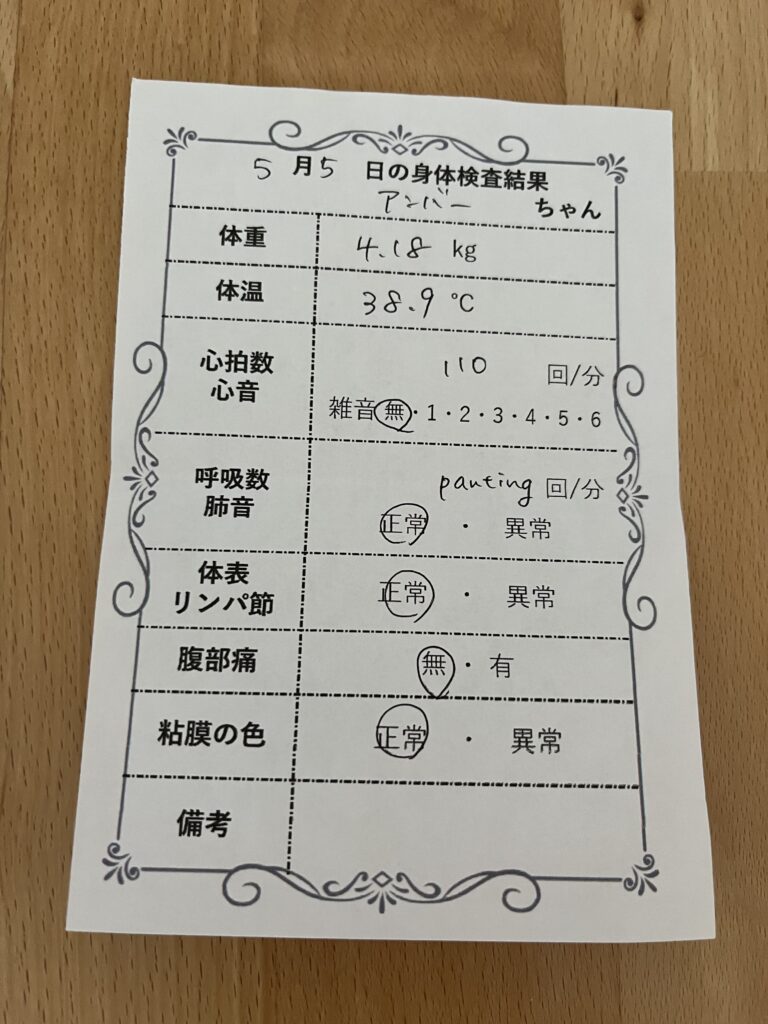 5月5日の身体検査結果
アンバー ちゃん
体重 4.18 kg
体温 38.9 ℃
心拍数 110 回/分
心音 雑音 無・1・2・3・4・5・6
呼吸数 panting 回/分
肺音 正常 ・ 異常
体表
リンパ節 正常 ・ 異常
腹部痛 無・有
粘膜の色 正常 ・ 異常
備考